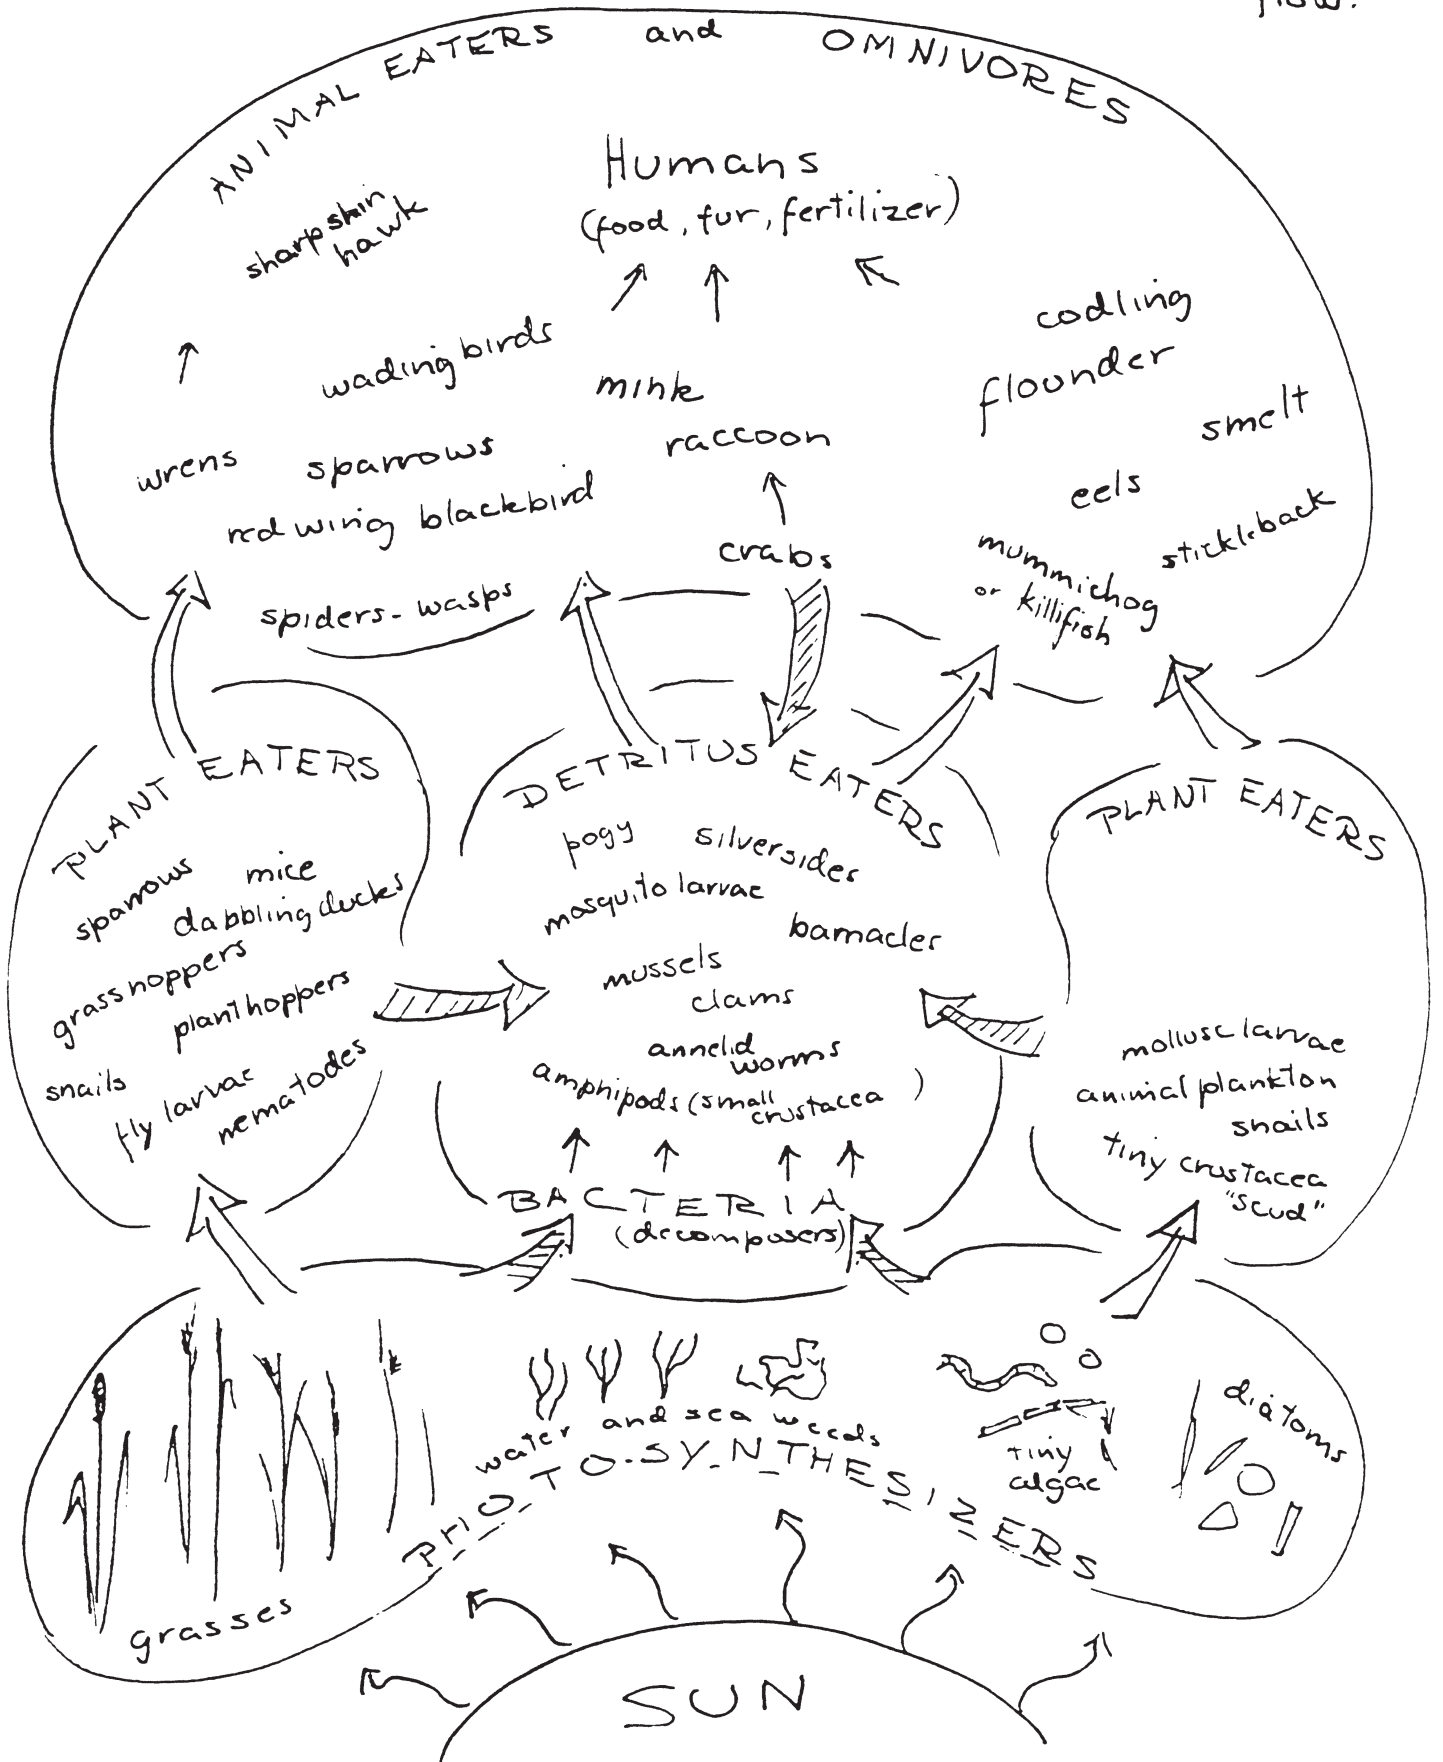 flow.
ANIMAL EATERS and OMNIVORES
Humans
(food, fur, fertilizer)
sharpshin
hawk
codling
wading birds
flounder
mink
smelt
raccoon
wrens
sparrows
eels
red wing blackbird
stickleback
crabs
mummichog
or killifish
spiders - wasps
PLANT EATERS
sparrows
mice
dabbling ducks
grasshoppers
planthoppers
snails
fly larvae
nematodes
DETRITUS EATERS
pogy
silversides
mosquito larvae
barnacles
mussels
clams
annelid
worms
amphipods (small
crustacea )
BACTERIA
(decomposers)
PLANT EATERS
mollusc larvae
animal plankton
snails
tiny crustacea
"scud"
water and sea weeds
tiny
algae
diatoms
grasses
PHOTO-SYNTHESIZERS
SUN